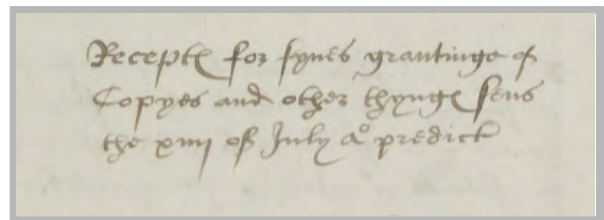 Receptę for fynes grantinge of
Copyes and other thyngę sens
the xiiij of July Aº predict